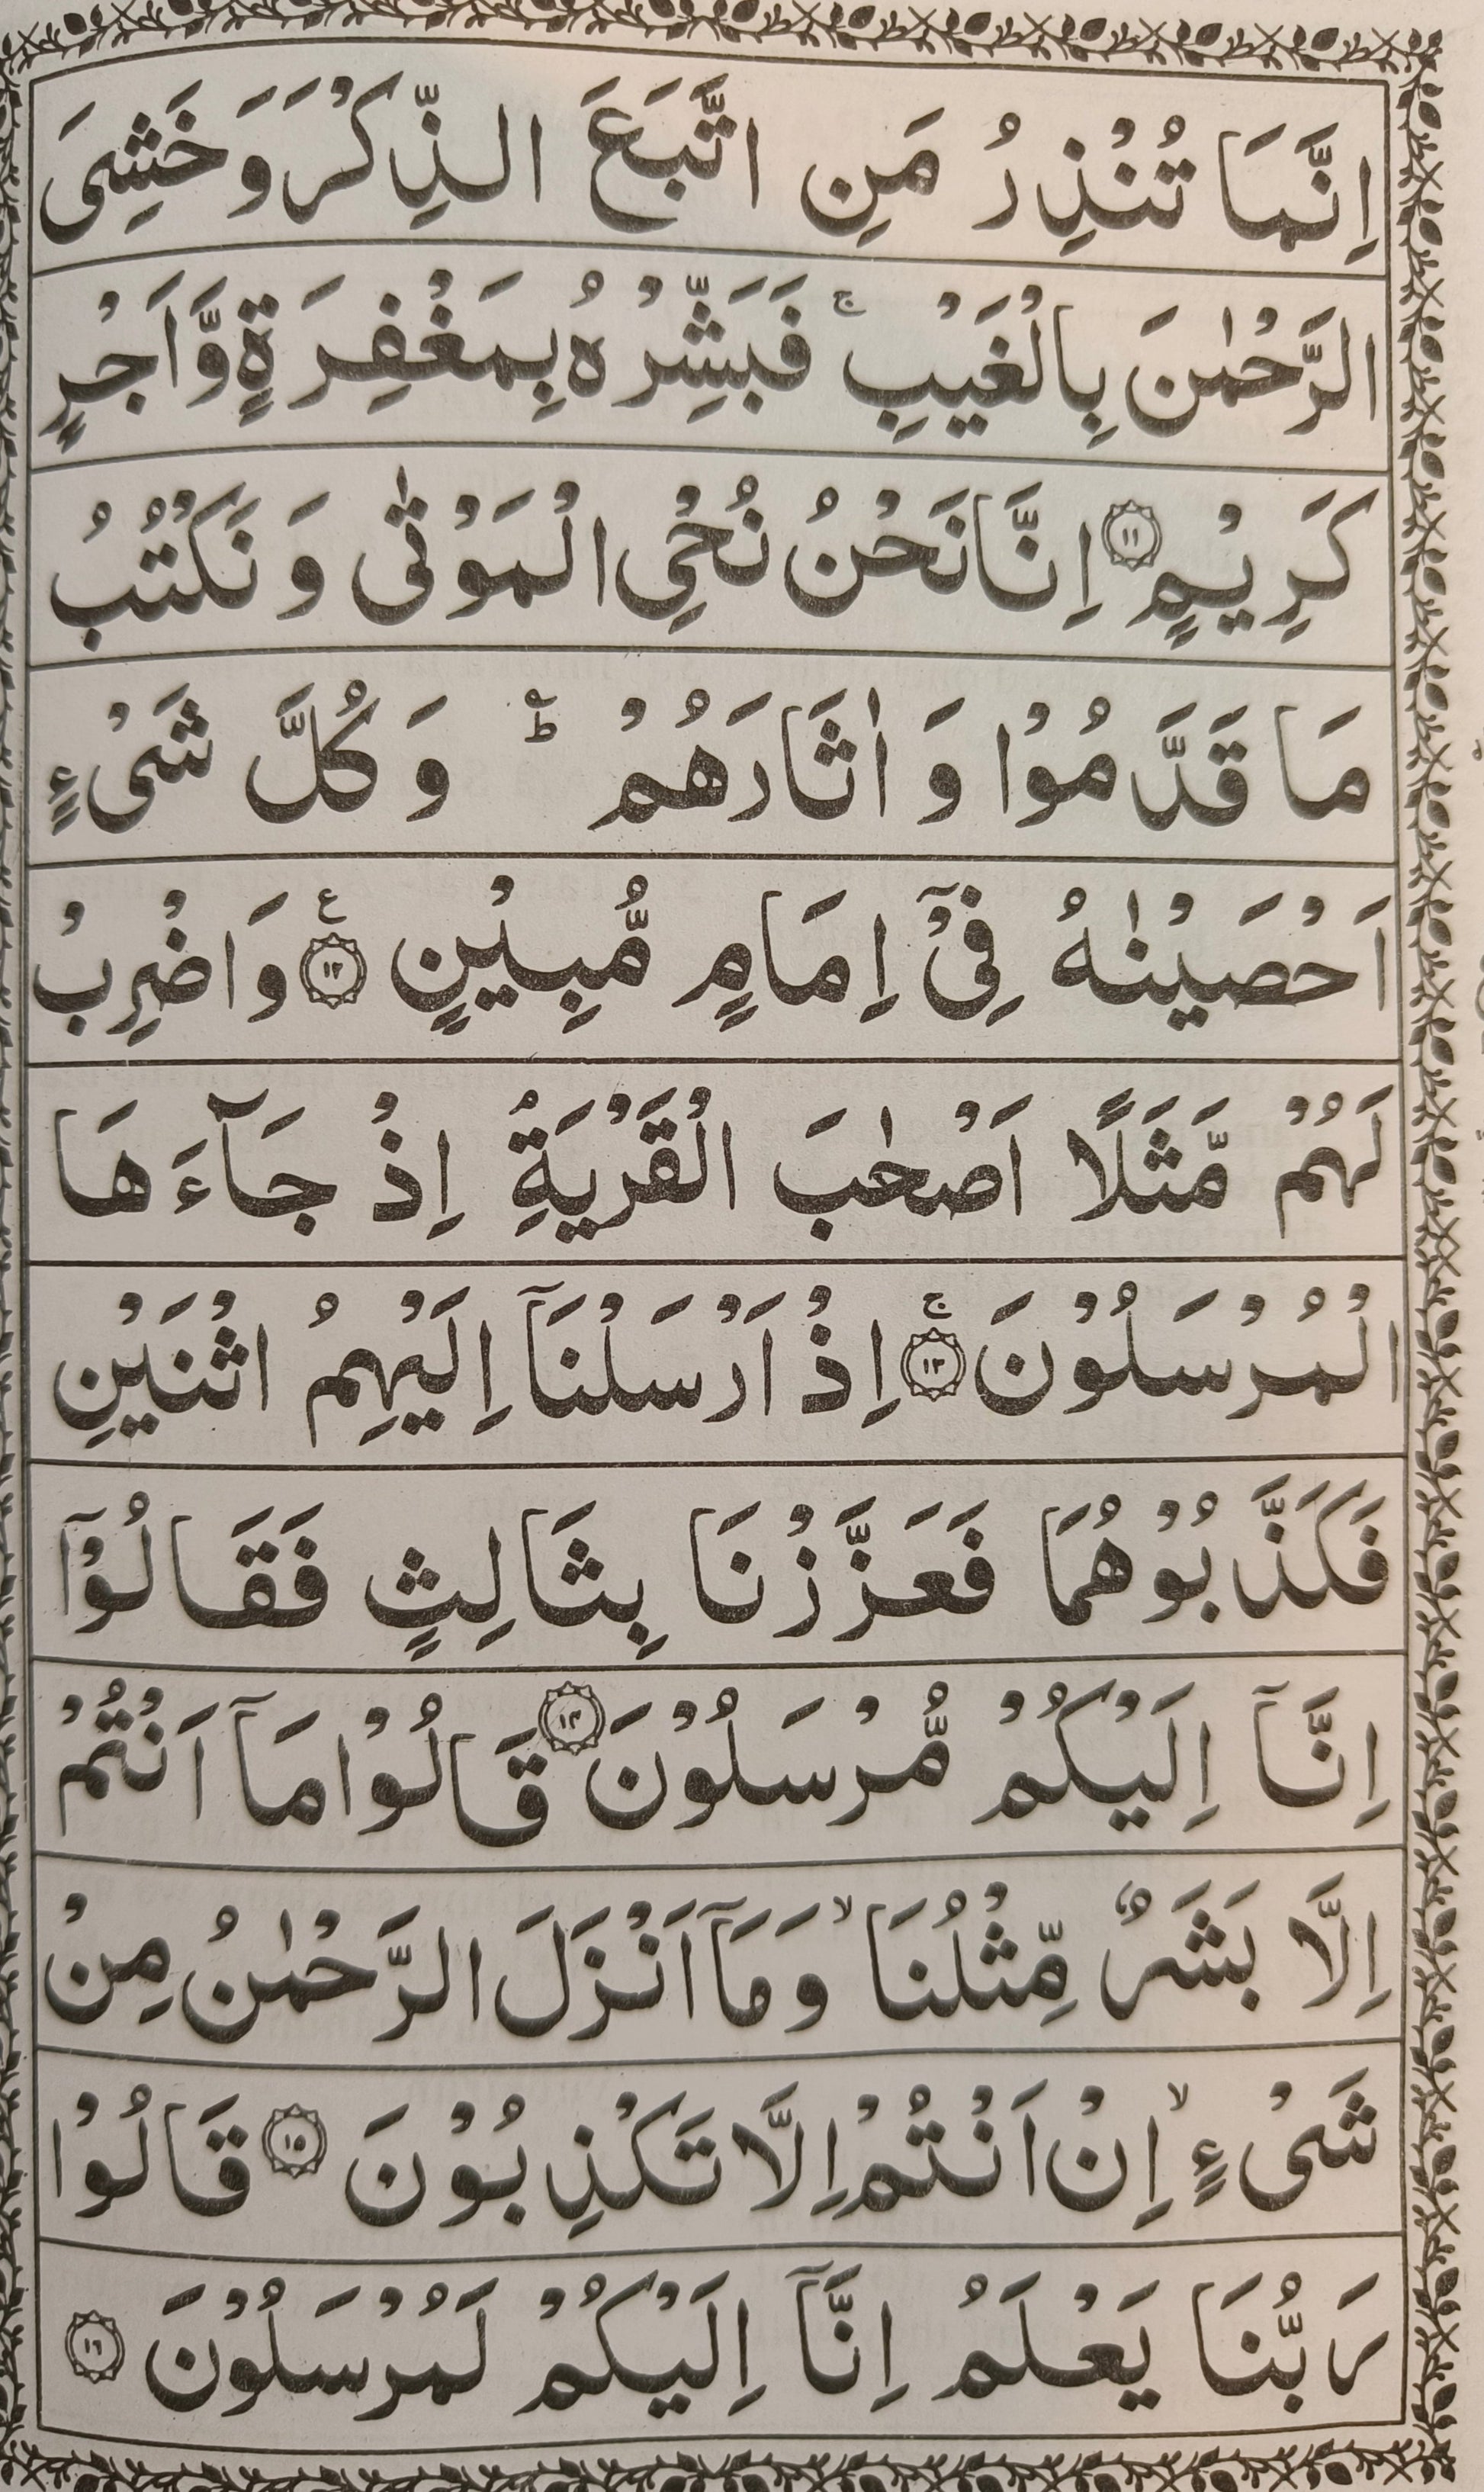 اِنَّمَا تُنْذِرُ مَنِ اتَّبَعَ الذِّكْرَ وَخَشِیَ
الرَّحْمٰنَ بِالْغَیْبِ ۚ فَبَشِّرْهُ بِمَغْفِرَةٍ وَّاَجْرٍ
كَرِیْمٍ ۝۱۱ اِنَّا نَحْنُ نُحْیِ الْمَوْتٰی وَنَكْتُبُ
مَا قَدَّمُوْا وَاٰثَارَهُمْ ؕ وَكُلَّ شَیْءٍ
اَحْصَیْنٰهُ فِیْۤ اِمَامٍ مُّبِیْنٍ ۝۱۲ ع وَاضْرِبْ
لَهُمْ مَّثَلًا اَصْحٰبَ الْقَرْیَةِ ۘ اِذْ جَآءَهَا
الْمُرْسَلُوْنَ ۝۱۳ ۚ اِذْ اَرْسَلْنَاۤ اِلَیْهِمُ اثْنَیْنِ
فَكَذَّبُوْهُمَا فَعَزَّزْنَا بِثَالِثٍ فَقَالُوْۤا
اِنَّاۤ اِلَیْكُمْ مُّرْسَلُوْنَ ۝۱۴ قَالُوْا مَاۤ اَنْتُمْ
اِلَّا بَشَرٌ مِّثْلُنَا ۙ وَمَاۤ اَنْزَلَ الرَّحْمٰنُ مِنْ
شَیْءٍ ۙ اِنْ اَنْتُمْ اِلَّا تَكْذِبُوْنَ ۝۱۵ قَالُوْا
رَبُّنَا یَعْلَمُ اِنَّاۤ اِلَیْكُمْ لَمُرْسَلُوْنَ ۝۱۶